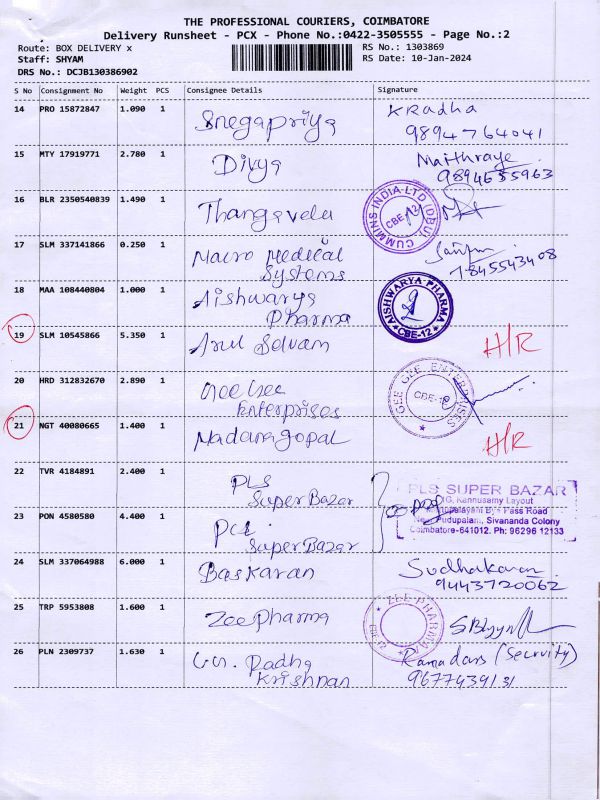 THE PROFESSIONAL COURIERS, COIMBATORE
Delivery Runsheet - PCX - Phone No.:0422-3505555 - Page No.:2
Route: BOX DELIVERY x
RS No.: 1303869
Staff: SHYAM
RS Date: 10-Jan-2024
DRS No.: DCJB130386902
S No Consignment No Weight PCS Consignee Details Signature
14 PRO 15872847 1.090 1 Snegapriya KRadha
9894764041
15 MTY 17919771 2.780 1 Divya Maithraye
9894655963
16 BLR 2350540839 1.490 1 Thangavelu CUMMINS INDIA LTD (DBU) CBE-12
17 SLM 337141866 0.250 1 Macro Medical
Systems
7845543408
18 MAA 108440804 1.000 1 Aishwarya
Pharma
AISHWARYA PHARMA CBE-12
19 SLM 10545866 5.350 1 Arul Selvam H/R
20 HRD 312832670 2.890 1 Gee Gee
Enterprises
GEE GEE ENTERPRISES CBE-12
21 NGT 40080665 1.400 1 Madanagopal H/R
22 TVR 4184891 2.400 1 PLS
Super Bazar
PLS SUPER BAZAR
Kannusamy Layout
Pass Road
Pudupalam, Sivananda Colony
Coimbatore-641012. Ph: 96296 12133
23 PON 4580580 4.400 1
Super Bazar
24 SLM 337064988 6.000 1 Baskaran Sudhakaran
9443720062
25 TRP 5953808 1.600 1 Zee Pharma ZEE PHARMA
26 PLN 2309737 1.630 1 Radha
Krishnan
Ramadars (Security)